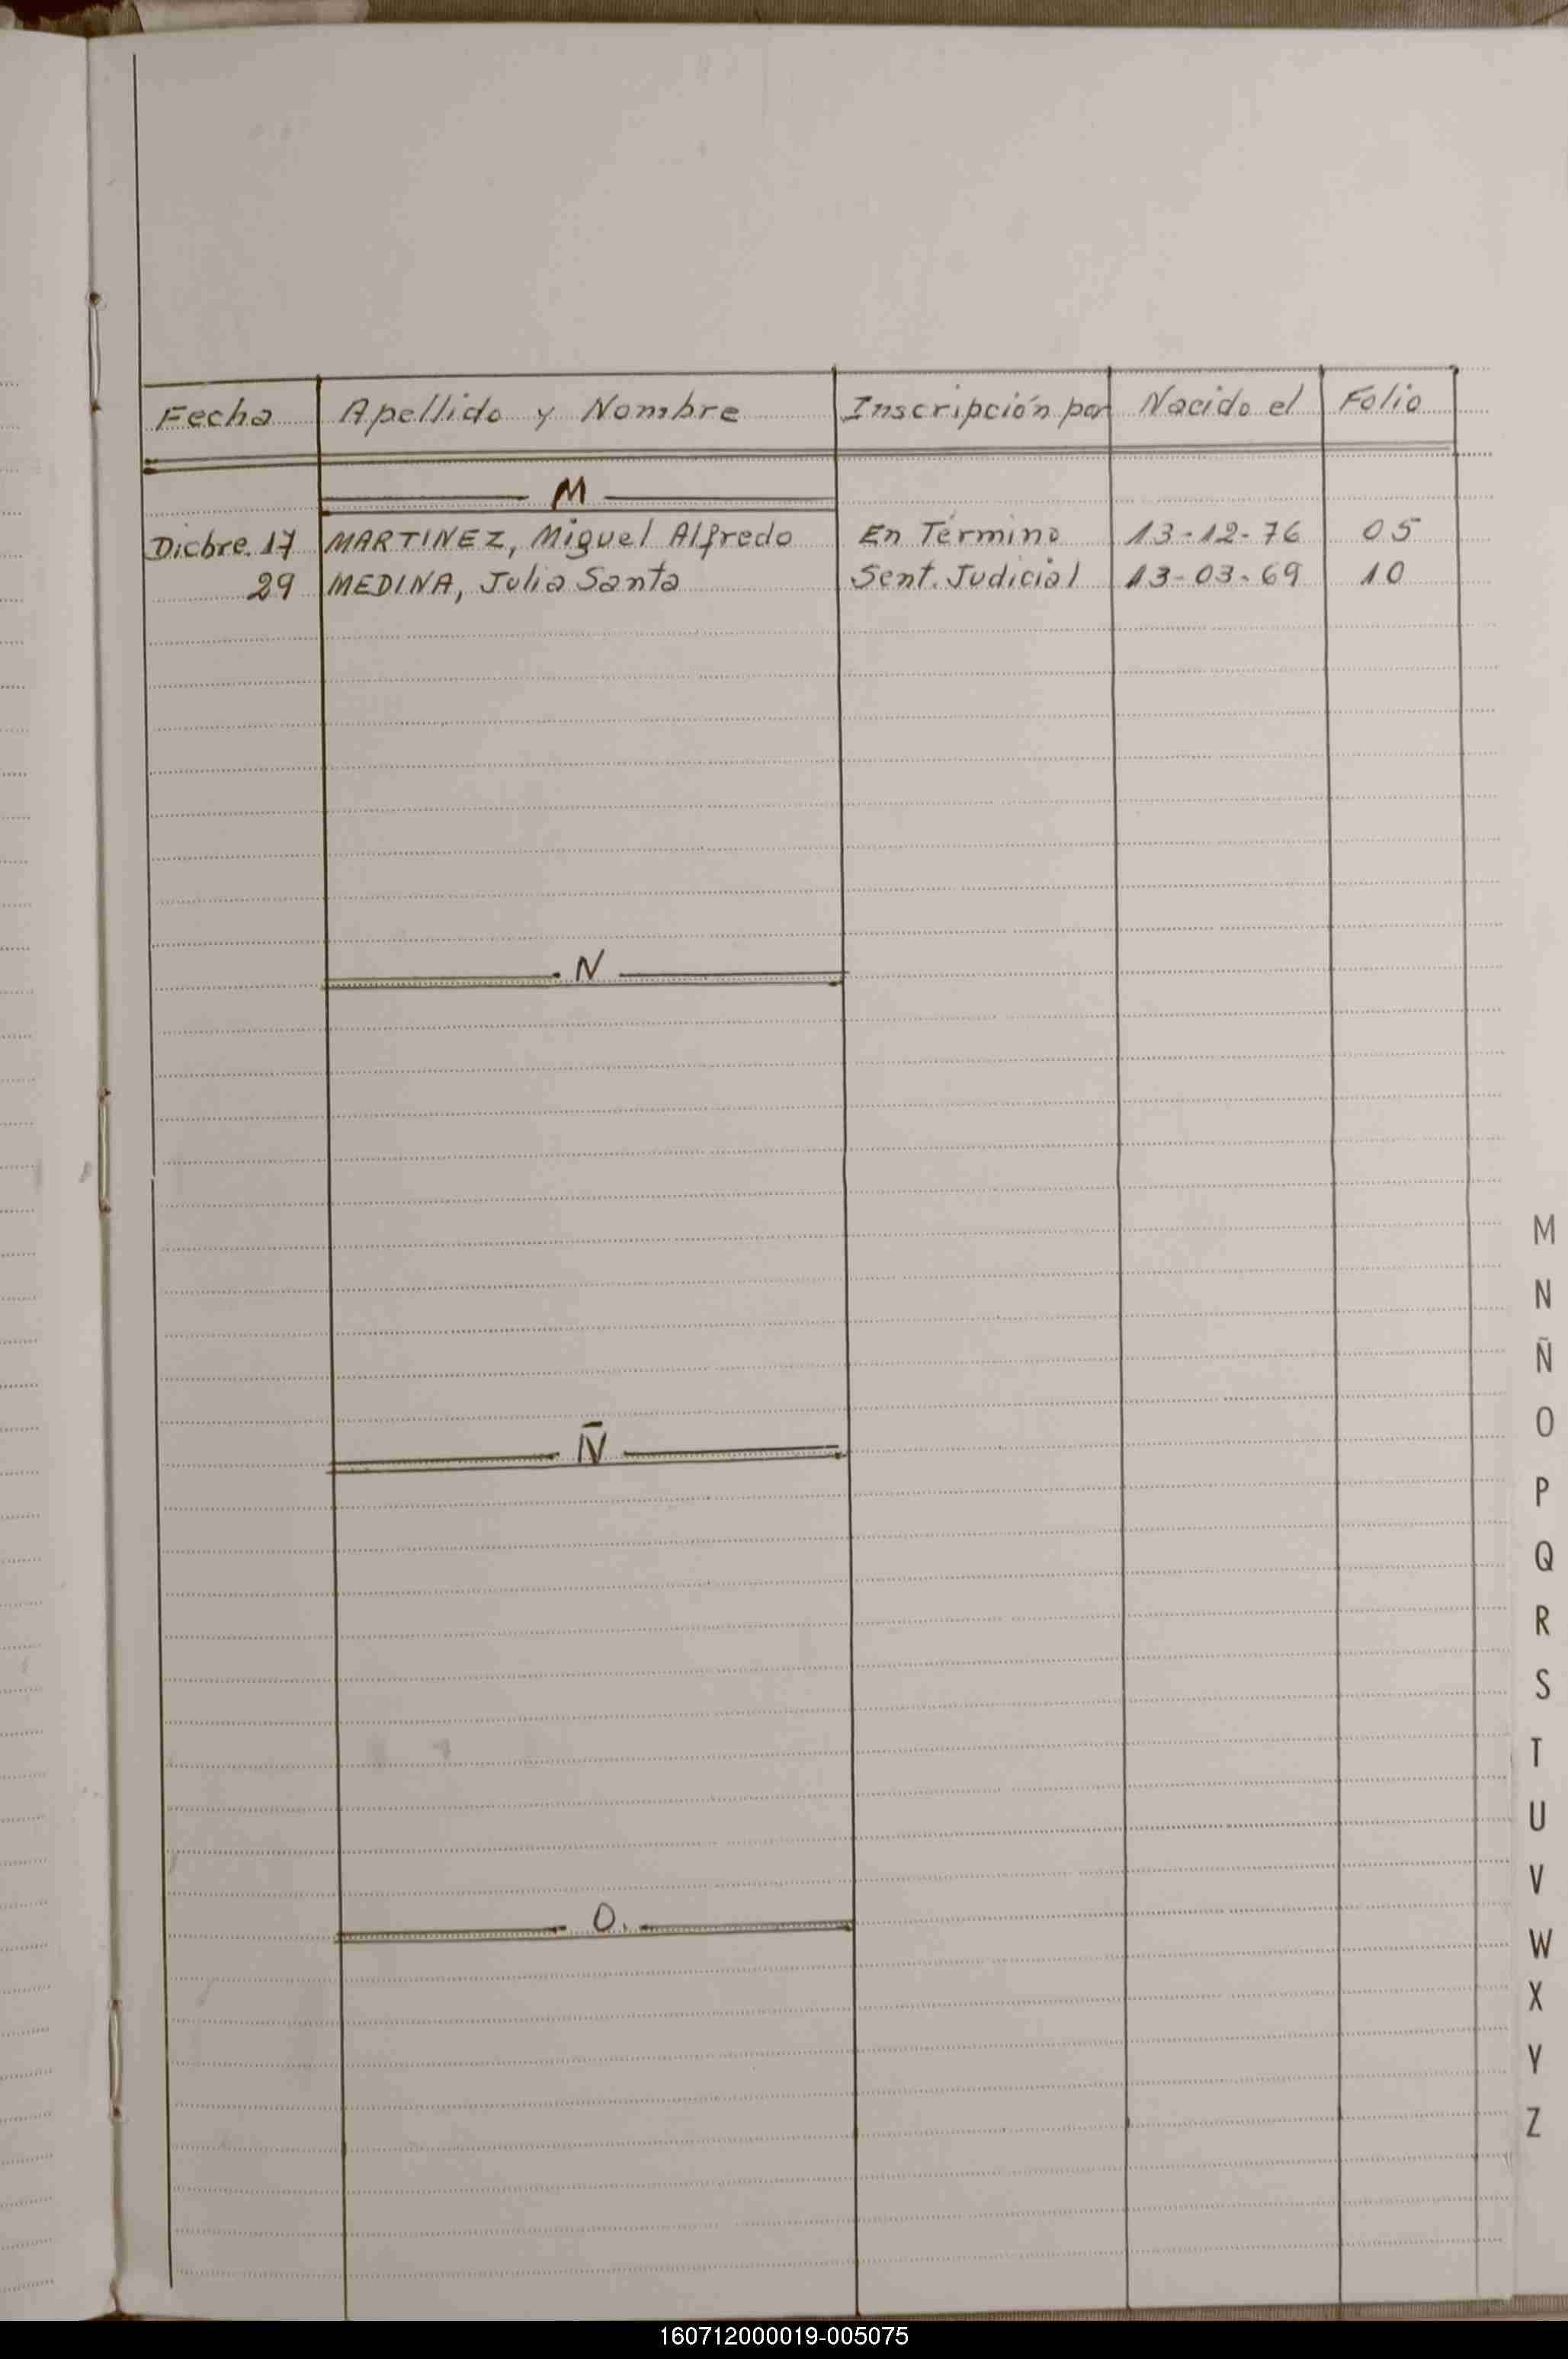 Fecha Apellido y Nombre Inscripción por Nacido el Folio
M
Dicbre. 17 MARTINEZ, Miguel Alfredo En Término 13-12-76 05
29 MEDINA, Julia Santa Sent. Judicial 13-03-69 10
N
Ñ
O.
M
N
Ñ
O
P
Q
R
S
T
U
V
W
X
Y
Z
160712000019-005075